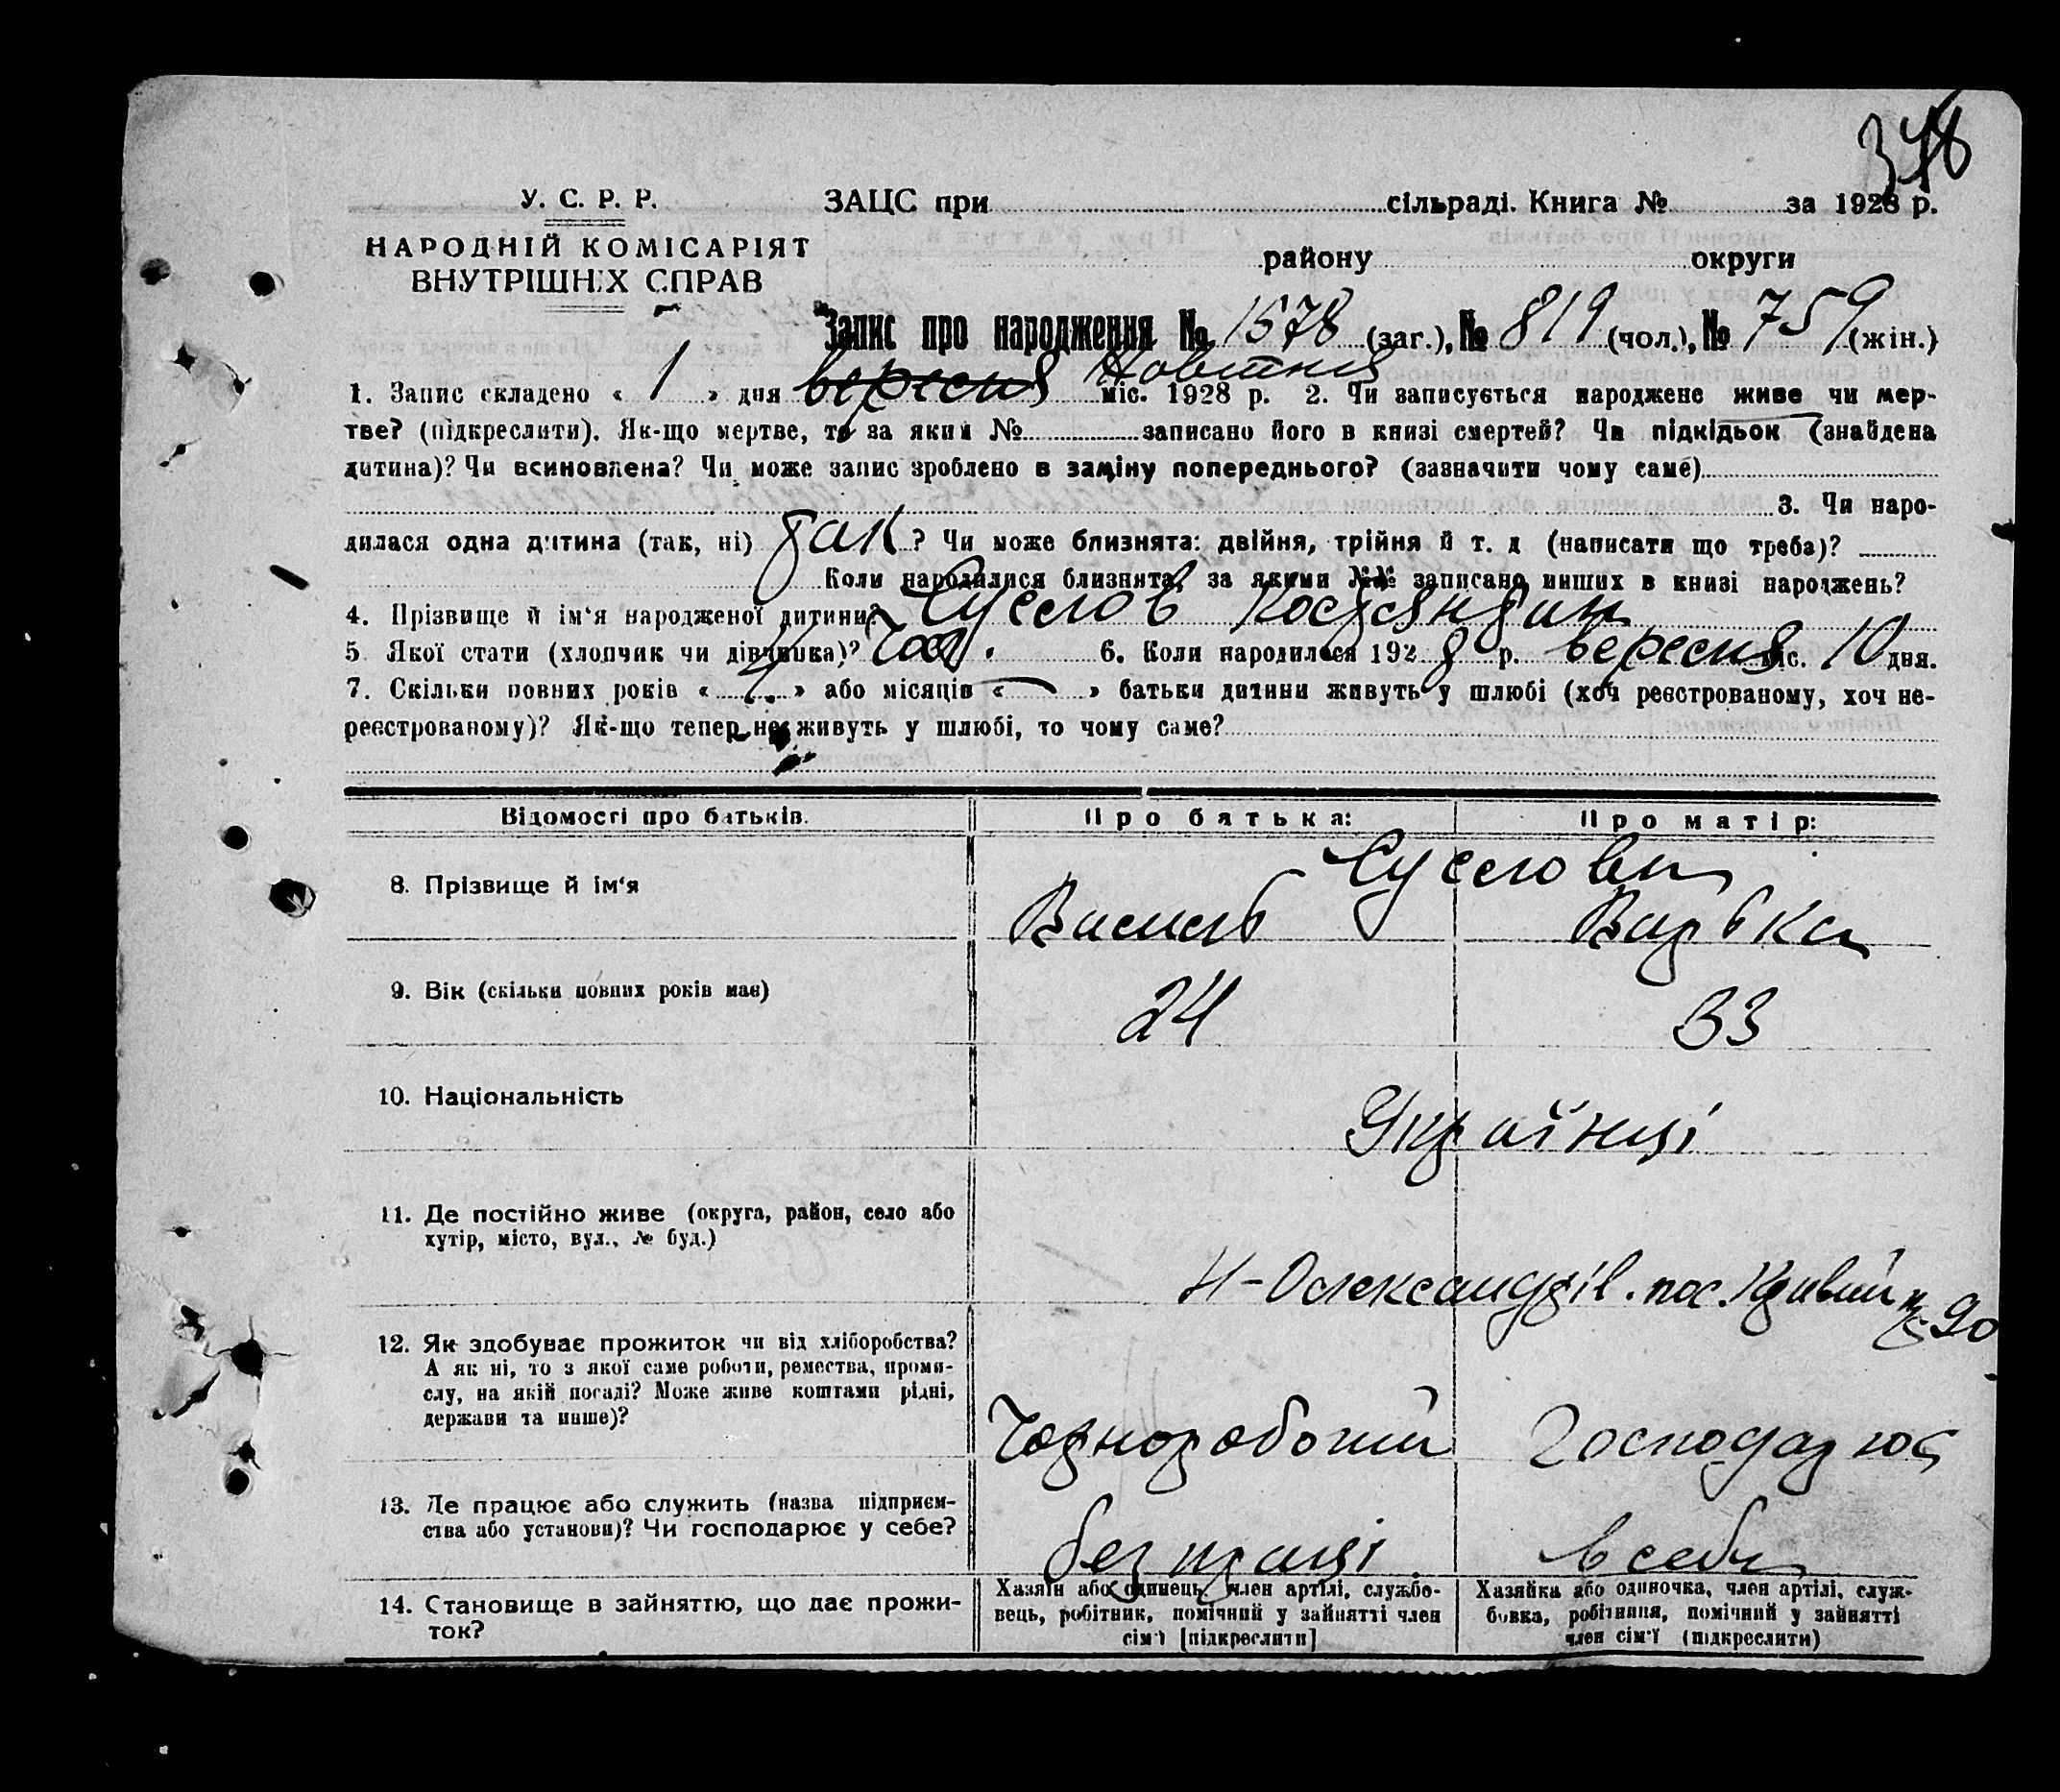 348
У. С. Р. Р.
НАРОДНІЙ КОМІСАРІЯТ
ВНУТРІШНІХ СПРАВ
ЗАЦС при сільраді. Книга № за 1928 р.
району округи
Запис про народження № 1578 (заг.), № 819 (чол.), № 759 (жін.)
1. Запис складено « 1 » дня вересня Новтня міс. 1928 р. 2. Чи записується народжене живе чи мер-
тве? (підкреслити). Як-що мертве, то за яким № записано його в книзі смертей? Чи підкідьок (знайдена
дитина)? Чи всиновлена? Чи може запис зроблено в заміну попереднього? (зазначити чому саме)
3. Чи наро-
дилася одна дитина (так, ні) так ? Чи може близнята: двійня, трійня й т. д (написати що треба)?
Коли народилися близнята, за якими №№ записано инших в книзі народжень?
4. Прізвище й ім'я народженої дитини? Суслов Костянтин
5 Якої стати (хлопчик чи дівчинка)? Чол. 6. Коли народилося 1928 р. вересня міс. 10 дня.
7. Скільки повних років « » або місяців « — » батьки дитини живуть у шлюбі (хоч реєстрованому, хоч не-
реєстрованому)? Як-що тепер не живуть у шлюбі, то чому саме?
Відомості про батьків. Про батька: Про матір:
Суслови
8. Прізвище й ім'я Василь Варька
9. Вік (скільки повних років має) 24 33
10. Національність Українці
11. Де постійно живе (округа, район, село або
хутір, місто, вул., № буд.)
Н-Олександрів. пос. Кривий № 90
12. Як здобуває прожиток чи від хліборобства?
А як ні, то з якої саме роботи, ремества, проми-
слу, на якій посаді? Може живе коштами рідні,
держави та инше)?
Чорноробочий Господарює
13. Де працює або служить (назва підприєм-
ства або установи)? Чи господарює у себе?
без праці в себе
14. Становище в зайняттю, що дає прожи-
ток?
Хазяїн або одинець, член артілі, службо-
вець, робітник, помічний у зайнятті член
сім'ї [підкреслити]
Хазяйка або одиночка, член артілі, служ-
бовка, робітниця, помічний у зайнятті
член сім'ї (підкреслити)